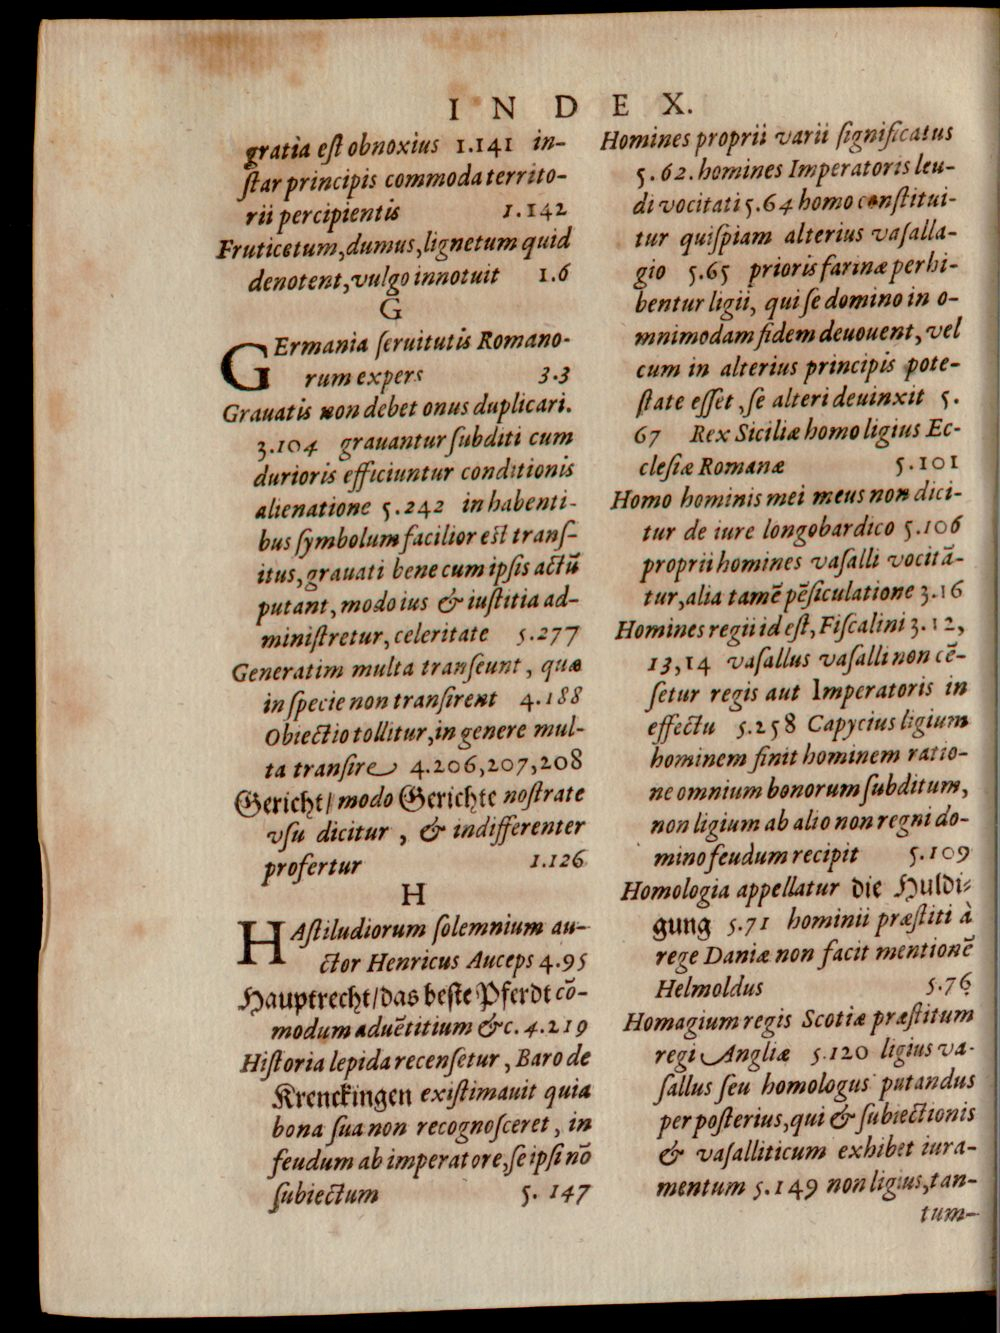 INDEX.
gratia est obnoxius 1.141 in-
ſtar principis commoda territo-
rii percipientis 1.142
Fruticetum, dumus, lignetum quid
denotent, vulgo innotuit 1.6
G
GErmania ſeruitutis Romano-
rum expers 3.3
Grauatis non debet onus duplicari.
3.104 grauantur ſubditi cum
durioris efficiuntur conditionis
alienatione 5.242 in habenti-
bus ſymbolum facilior eſt tranſ-
itus, grauati bene cum ipſis actū
putant, modo ius & iuſtitia ad-
miniſtretur, celeritate 5.277
Generatim multa tranſeunt, quæ
in ſpecie non tranſirent 4.188
Obiectio tollitur, in genere mul-
ta tranſire 4.206,207,208
Gericht/ modo Gerichte noſtrate
vſu dicitur, & indifferenter
profertur 1.126
H
HAſtiludiorum ſolemnium au-
ctor Henricus Auceps 4.95
Hauptrecht/das beſte Pferdt cō-
modum aduētitium &c. 4.219
Hiſtoria lepida recenſetur, Baro de
Krenckingen exiſtimauit quia
bona ſua non recognoſceret, in
feudum ab imperatore, ſe ipſi nō
ſubiectum 5. 147
Homines proprii varii ſignificatus
5.62. homines Imperatoris leu-
di vocitati 5.64 homo conſtitui-
tur quiſpiam alterius vaſalla-
gio 5.65 prioris farinæ perhi-
bentur ligii, qui ſe domino in o-
mnimodam fidem deuouent, vel
cum in alterius principis pote-
ſtate eſſet, ſe alteri deuinxit 5.
67 Rex Siciliæ homo ligius Ec-
cleſiæ Romanæ 5.101
Homo hominis mei meus non dici-
tur de iure longobardico 5.106
proprii homines vaſalli vocitā-
tur, alia tamē pēſiculatione 3.16
Homines regii id eſt, Fiſcalini 3.12,
13,14 vaſallus vaſalli non cē-
ſetur regis aut Imperatoris in
effectu 5.258 Capycius ligium
hominem finit hominem ratio-
ne omnium bonorum ſubditum,
non ligium ab alio non regni do-
mino feudum recipit 5.109
Homologia appellatur die Huldi-
gung 5.71 hominii præſtiti à
rege Daniæ non facit mentionē
Helmoldus 5.76
Homagium regis Scotiæ præſtitum
regi Angliæ 5.120 ligius va-
ſallus ſeu homologus putandus
per poſterius, qui & ſubiectionis
& vaſalliticum exhibet iura-
mentum 5.149 non ligius, tan-
tum-